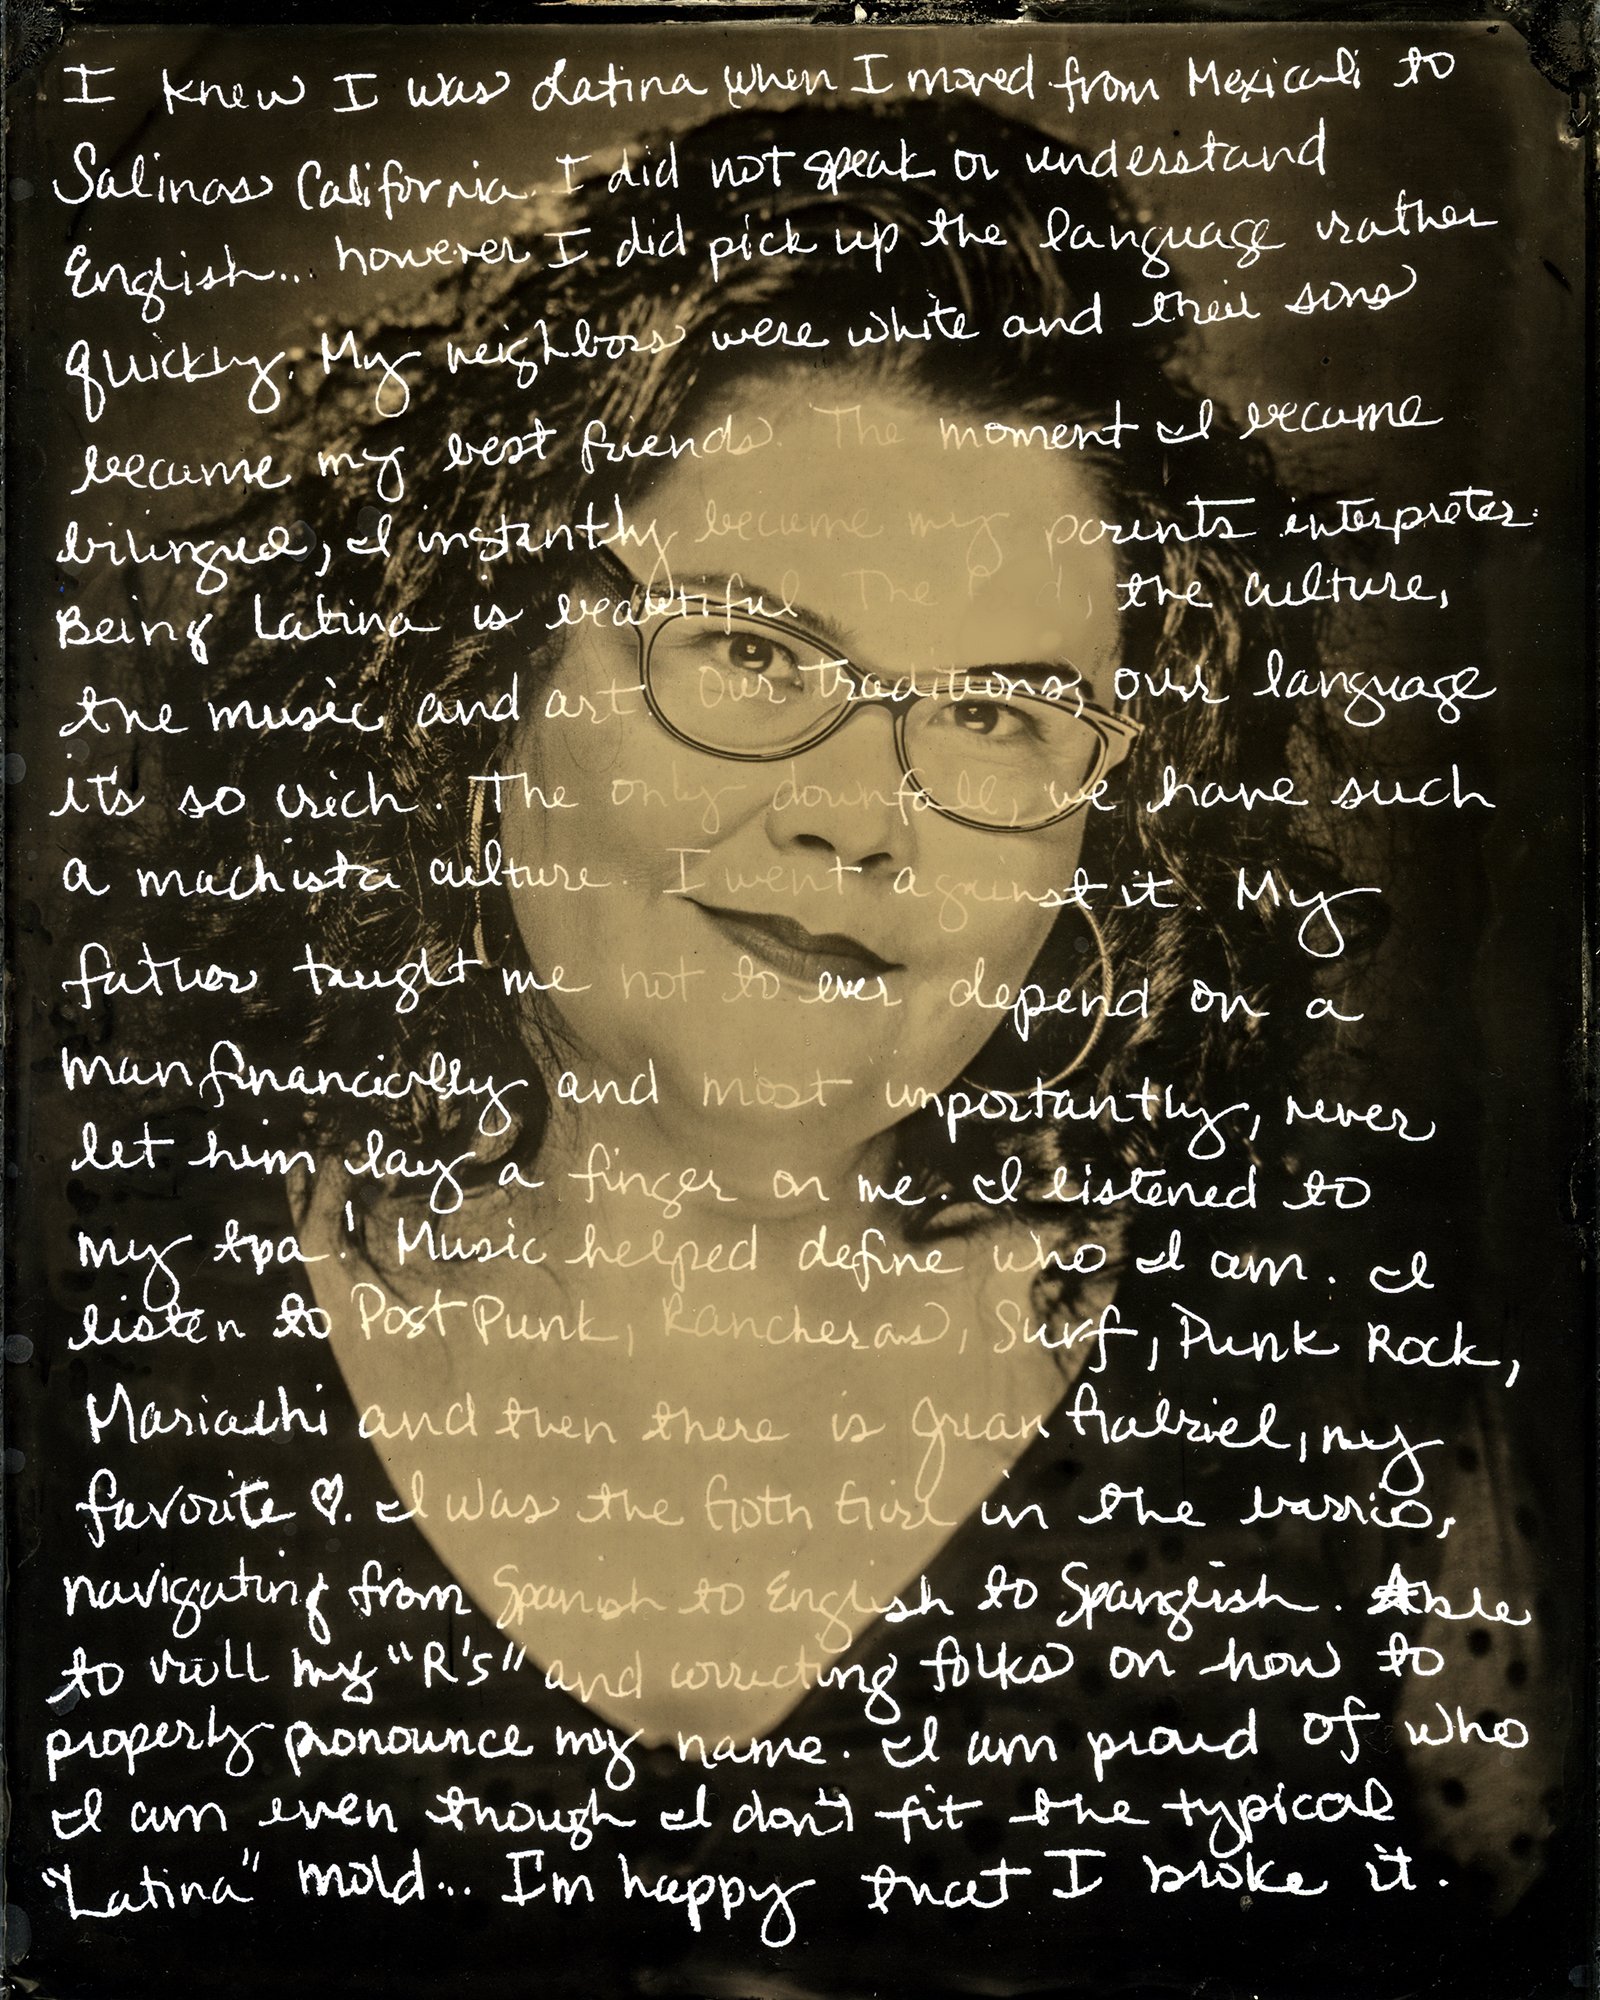 I knew I was Latina when I moved from Mexicali to
Salinas California. I did not speak or understand
English... however I did pick up the language rather
quickly. My neighbors were white and their sons
became my best friends. The moment I became
bilingual, I instantly became my parents interpreter.
Being Latina is beautiful. The , the culture,
the music and art. Our traditions, our language
it's so rich. The only downfall, we have such
a machista culture. I went against it. My
father taught me not to ever depend on a
man financially and most importantly, never
let him lay a finger on me. I listened to
my apa! Music helped define who I am. I
listen to Post Punk, Rancheras, Surf, Punk Rock,
Mariachi and then there is Juan Gabriel, my
favorite ♡. I was the Goth Girl in the barrio,
navigating from Spanish to English to Spanglish. Able
to roll my "R's" and correcting folks on how to
properly pronounce my name. I am proud of who
I am even though I don't fit the typical
"Latina" mold... I'm happy that I broke it.